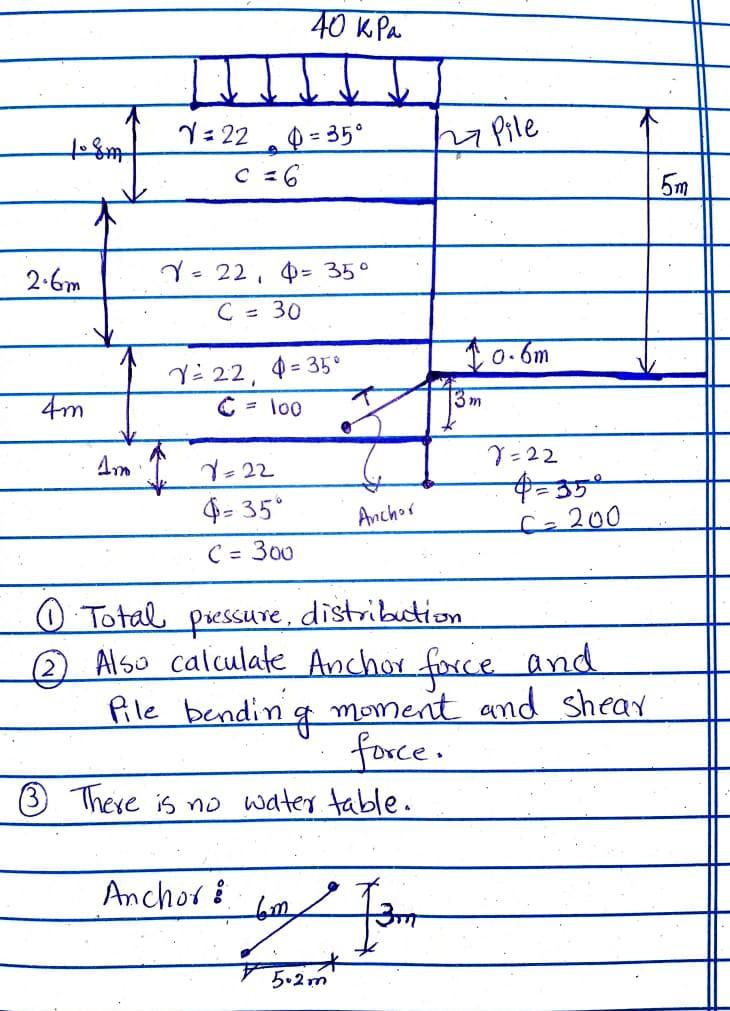 40 KPa
1.8m
γ = 22, ϕ = 35°
C = 6
Pile
5m
2.6m
γ = 22, ϕ = 35°
C = 30
0.6m
γ = 22, ϕ = 35°
C = 100
T
3m
4m
1m
γ = 22
ϕ = 35°
C = 300
Anchor
γ = 22
ϕ = 35°
C = 200
① Total pressure, distribution
② Also calculate Anchor force and
Pile bending moment and shear
force.
③ There is no water table.
Anchor:
6m
3m
5.2m